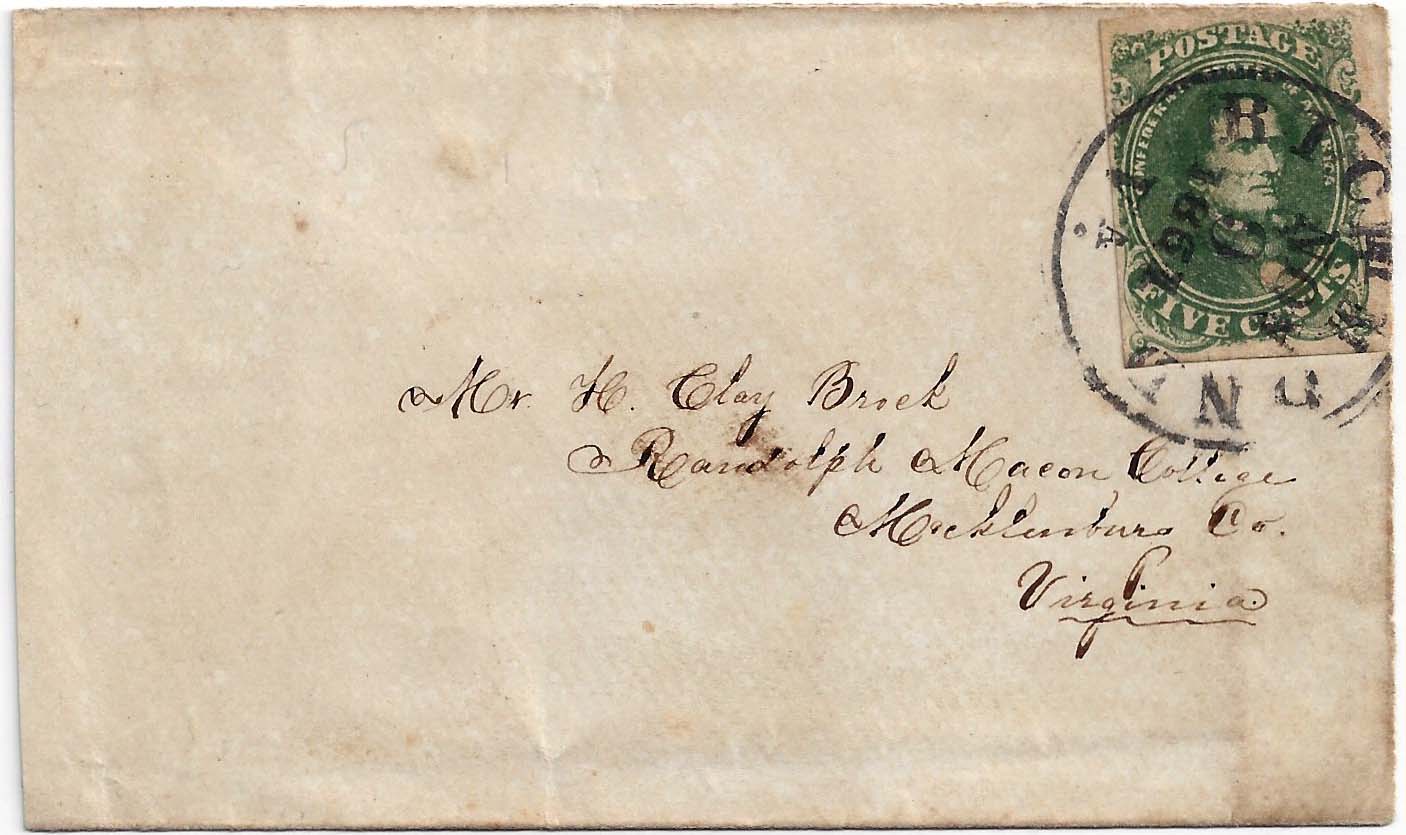 POSTAGE
CONFEDERATE STATES OF AMERICA
FIVE CENTS
RICHMOND VA.
NOV
1861
Mr. H. Clay Brock
Randolph Macon College
Mecklenburg Co.
Virginia